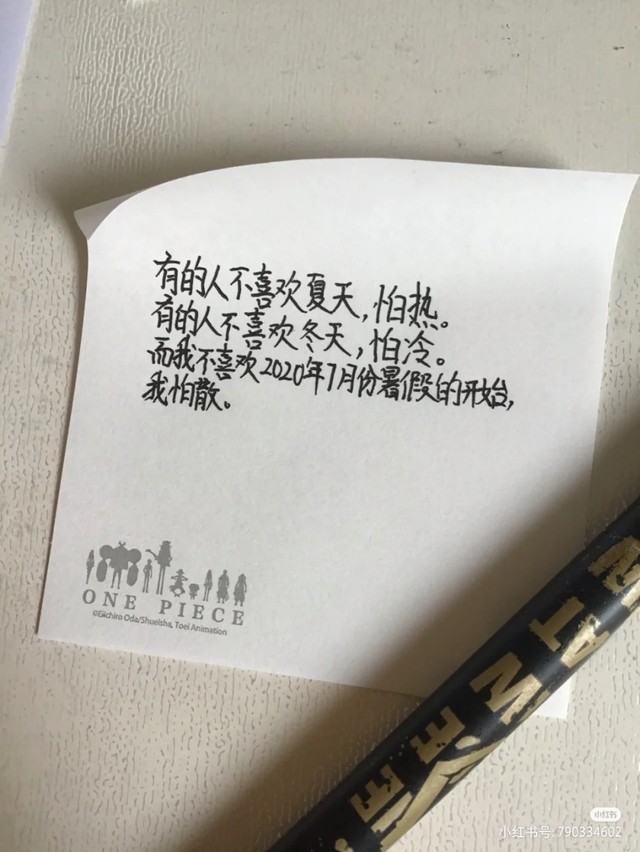 有的人不喜欢夏天,怕热。
有的人不喜欢冬天,怕冷。
而我不喜欢2020年7月份暑假的开始,
我怕散。
ONE PIECE
©Eiichiro Oda/Shueisha, Toei Animation
小红书
小红书号: 790334602